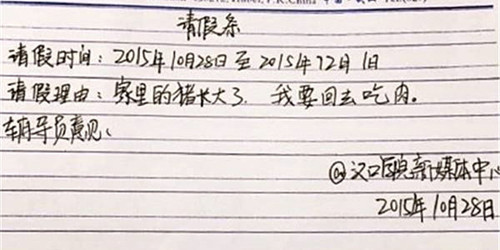 P.R.China
请假条
请假时间：2015年10月28日至2015年12月1日
请假理由：寨里的猪长大了，我要回去吃肉。
辅导员意见：
@汉口学院新媒体中心
2015年10月28日